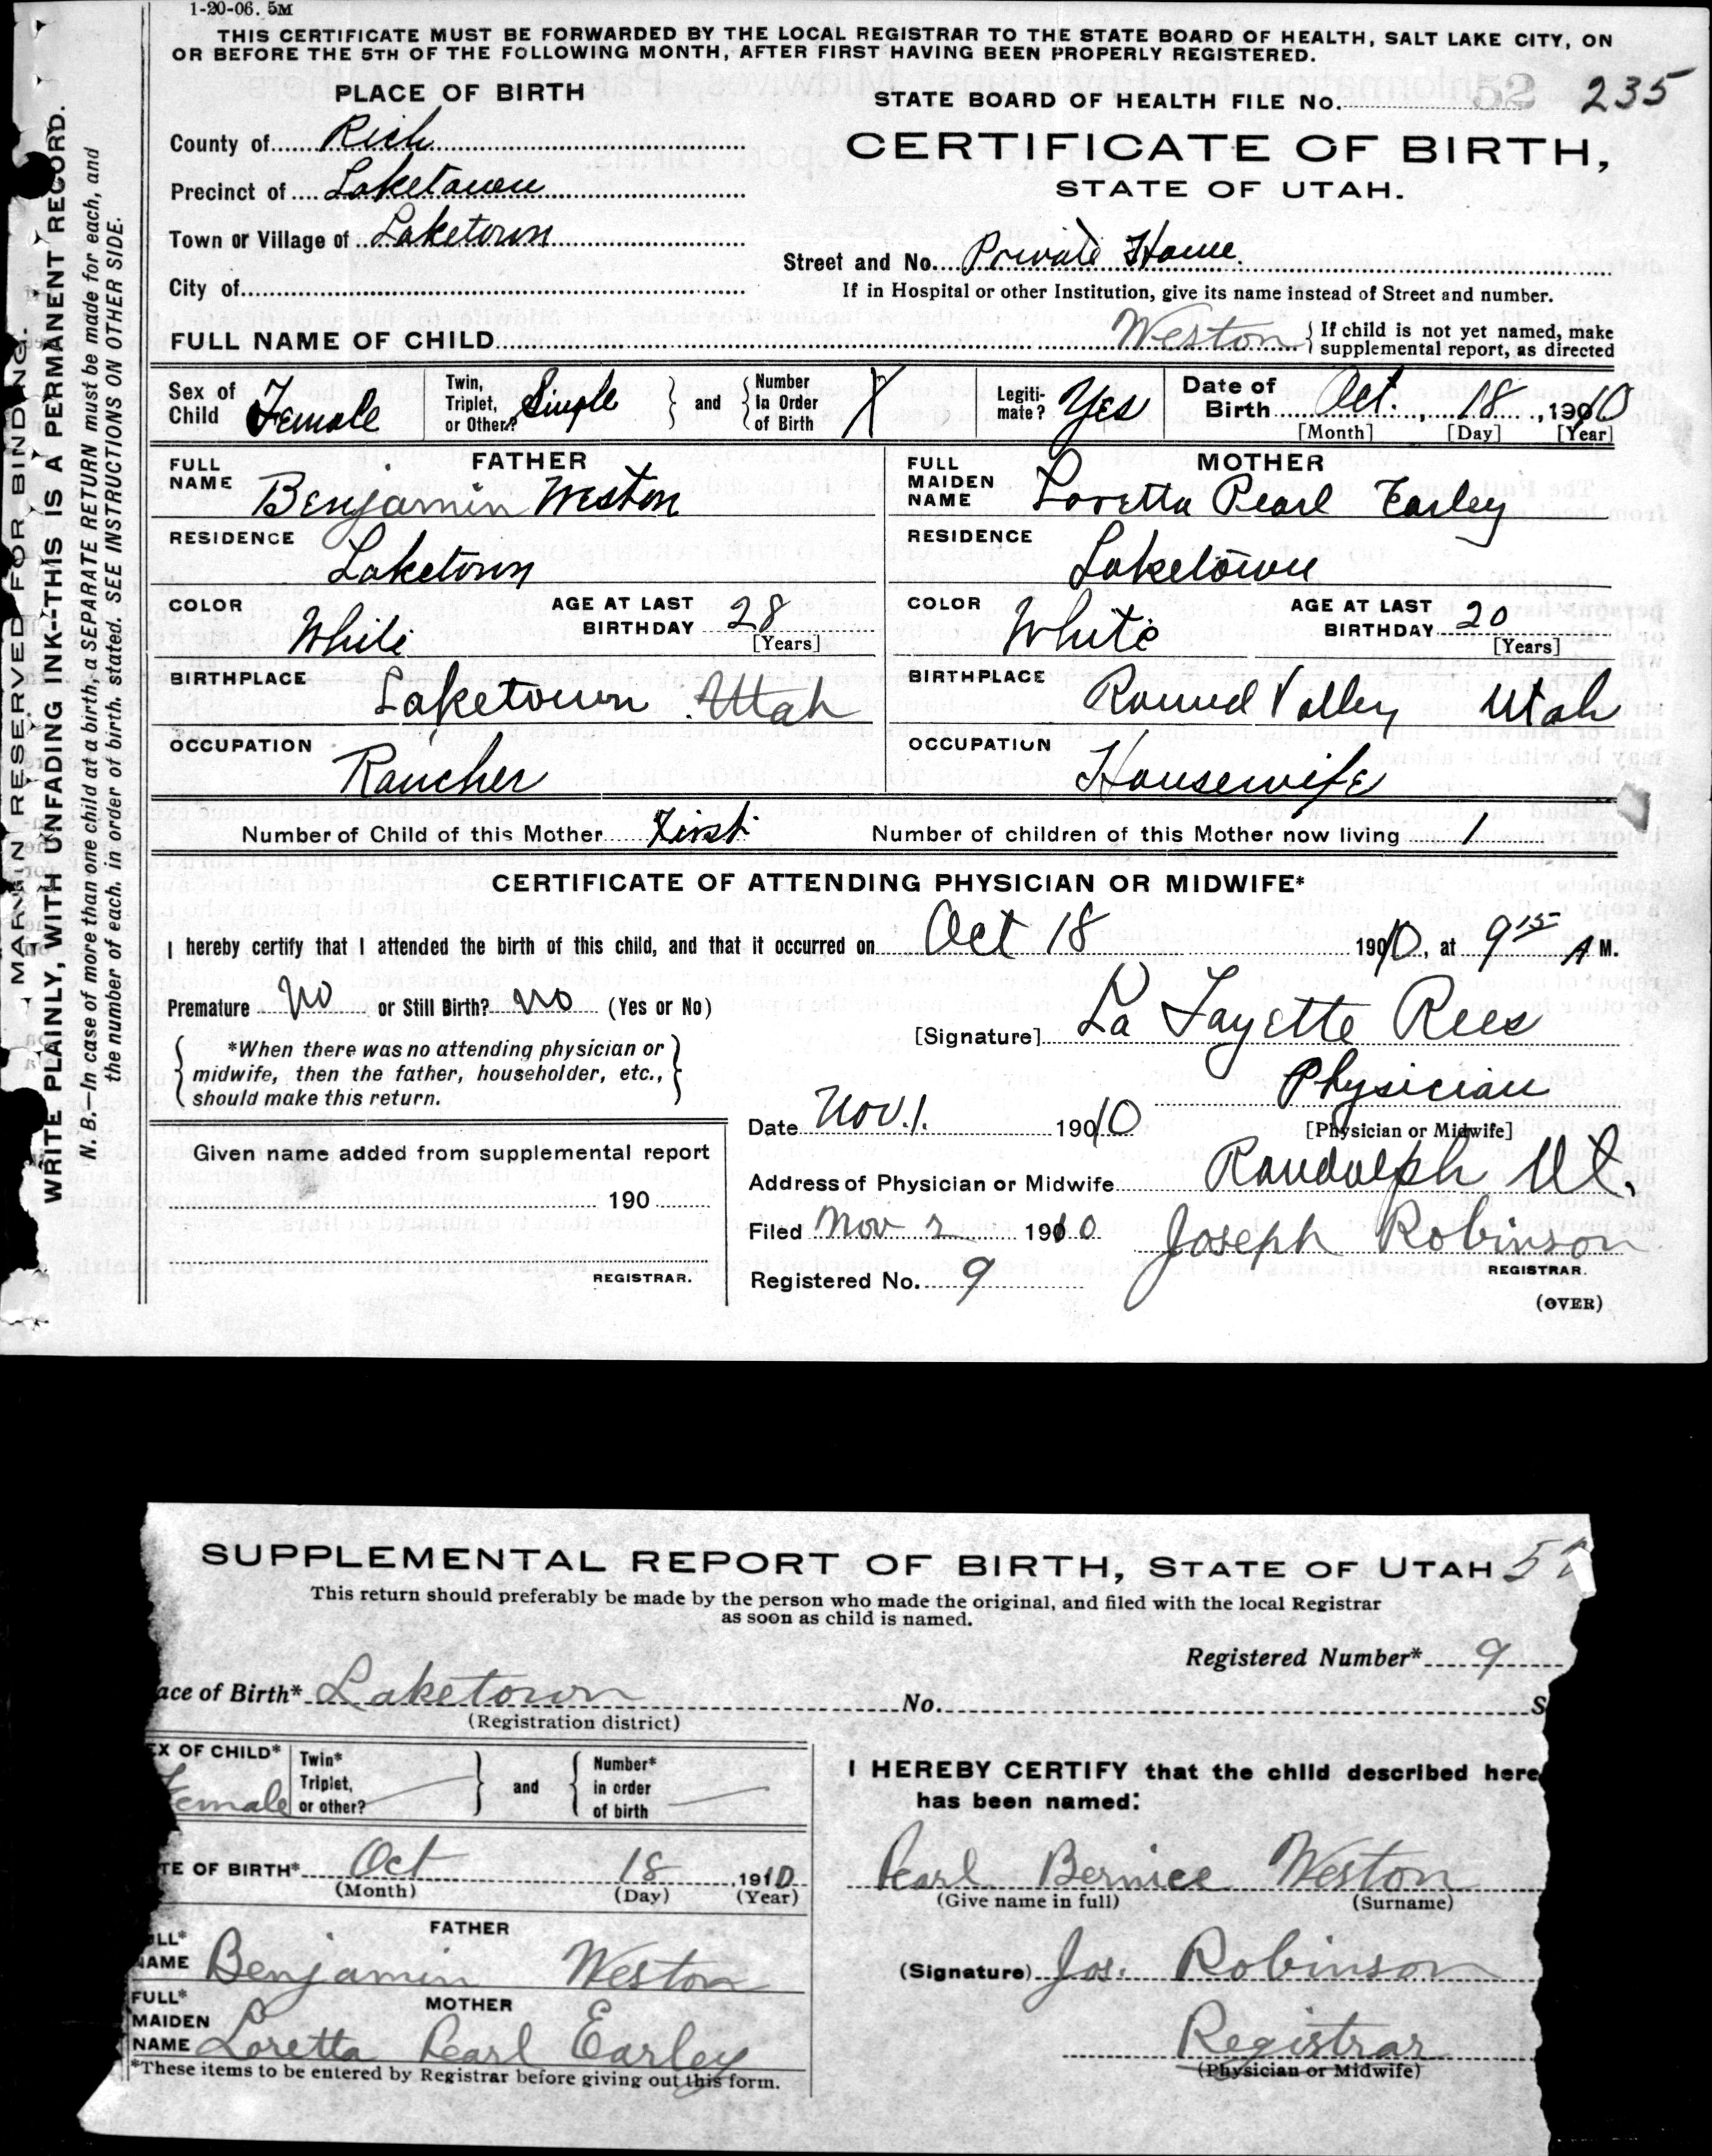 1-20-06. 5M
THIS CERTIFICATE MUST BE FORWARDED BY THE LOCAL REGISTRAR TO THE STATE BOARD OF HEALTH, SALT LAKE CITY, ON
OR BEFORE THE 5TH OF THE FOLLOWING MONTH, AFTER FIRST HAVING BEEN PROPERLY REGISTERED.
MARGIN RESERVED FOR BINDING.
WRITE PLAINLY, WITH UNFADING INK--THIS IS A PERMANENT RECORD.
N. B.—In case of more than one child at a birth, a SEPARATE RETURN must be made for each, and
the number of each, in order of birth, stated. SEE INSTRUCTIONS ON OTHER SIDE.
PLACE OF BIRTH
County of Rich
Precinct of Laketown
Town or Village of Laketown
City of
STATE BOARD OF HEALTH FILE No. 52 235
CERTIFICATE OF BIRTH,
STATE OF UTAH.
Street and No. Private Home.
If in Hospital or other Institution, give its name instead of Street and number.
FULL NAME OF CHILD Weston { If child is not yet named, make
supplemental report, as directed
Sex of Child Female
Twin, Triplet, or Other? Single } and { Number In Order of Birth X
Legiti-mate? Yes
Date of Birth Oct. , 18 , 1910
[Month] [Day] [Year]
FATHER
FULL NAME Benjamin Weston
RESIDENCE Laketown
COLOR White AGE AT LAST BIRTHDAY 28 [Years]
BIRTHPLACE Laketown Utah
OCCUPATION Rancher
MOTHER
FULL MAIDEN NAME Loretta Pearl Earley
RESIDENCE Laketown
COLOR White AGE AT LAST BIRTHDAY 20 [Years]
BIRTHPLACE Round Valley Utah
OCCUPATION Housewife
Number of Child of this Mother First Number of children of this Mother now living 1
CERTIFICATE OF ATTENDING PHYSICIAN OR MIDWIFE*
I hereby certify that I attended the birth of this child, and that it occurred on Oct 18 1910, at 9 15 A M.
Premature No or Still Birth? No (Yes or No)
{ *When there was no attending physician or
midwife, then the father, householder, etc.,
should make this return. }
[Signature] La Fayette Rees
Physician
[Physician or Midwife]
Date Nov. 1. 1910
Address of Physician or Midwife Randolph Ut.
Filed Nov 2 1910 Joseph Robinson
REGISTRAR.
Registered No. 9
(OVER)
Given name added from supplemental report
190
REGISTRAR.
SUPPLEMENTAL REPORT OF BIRTH, STATE OF UTAH
This return should preferably be made by the person who made the original, and filed with the local Registrar
as soon as child is named.
Registered Number* 9
ace of Birth* Laketown No. S
(Registration district)
EX OF CHILD* Female
Twin* Triplet, or other? } and { Number* in order of birth
TE OF BIRTH* Oct 18 , 1910
(Month) (Day) (Year)
FATHER
ULL* NAME Benjamin Weston
MOTHER
FULL* MAIDEN NAME Loretta Pearl Earley
*These items to be entered by Registrar before giving out this form.
I HEREBY CERTIFY that the child described here
has been named:
Pearl Bernice Weston
(Give name in full) (Surname)
(Signature) Jos. Robinson
Registrar
(Physician or Midwife)